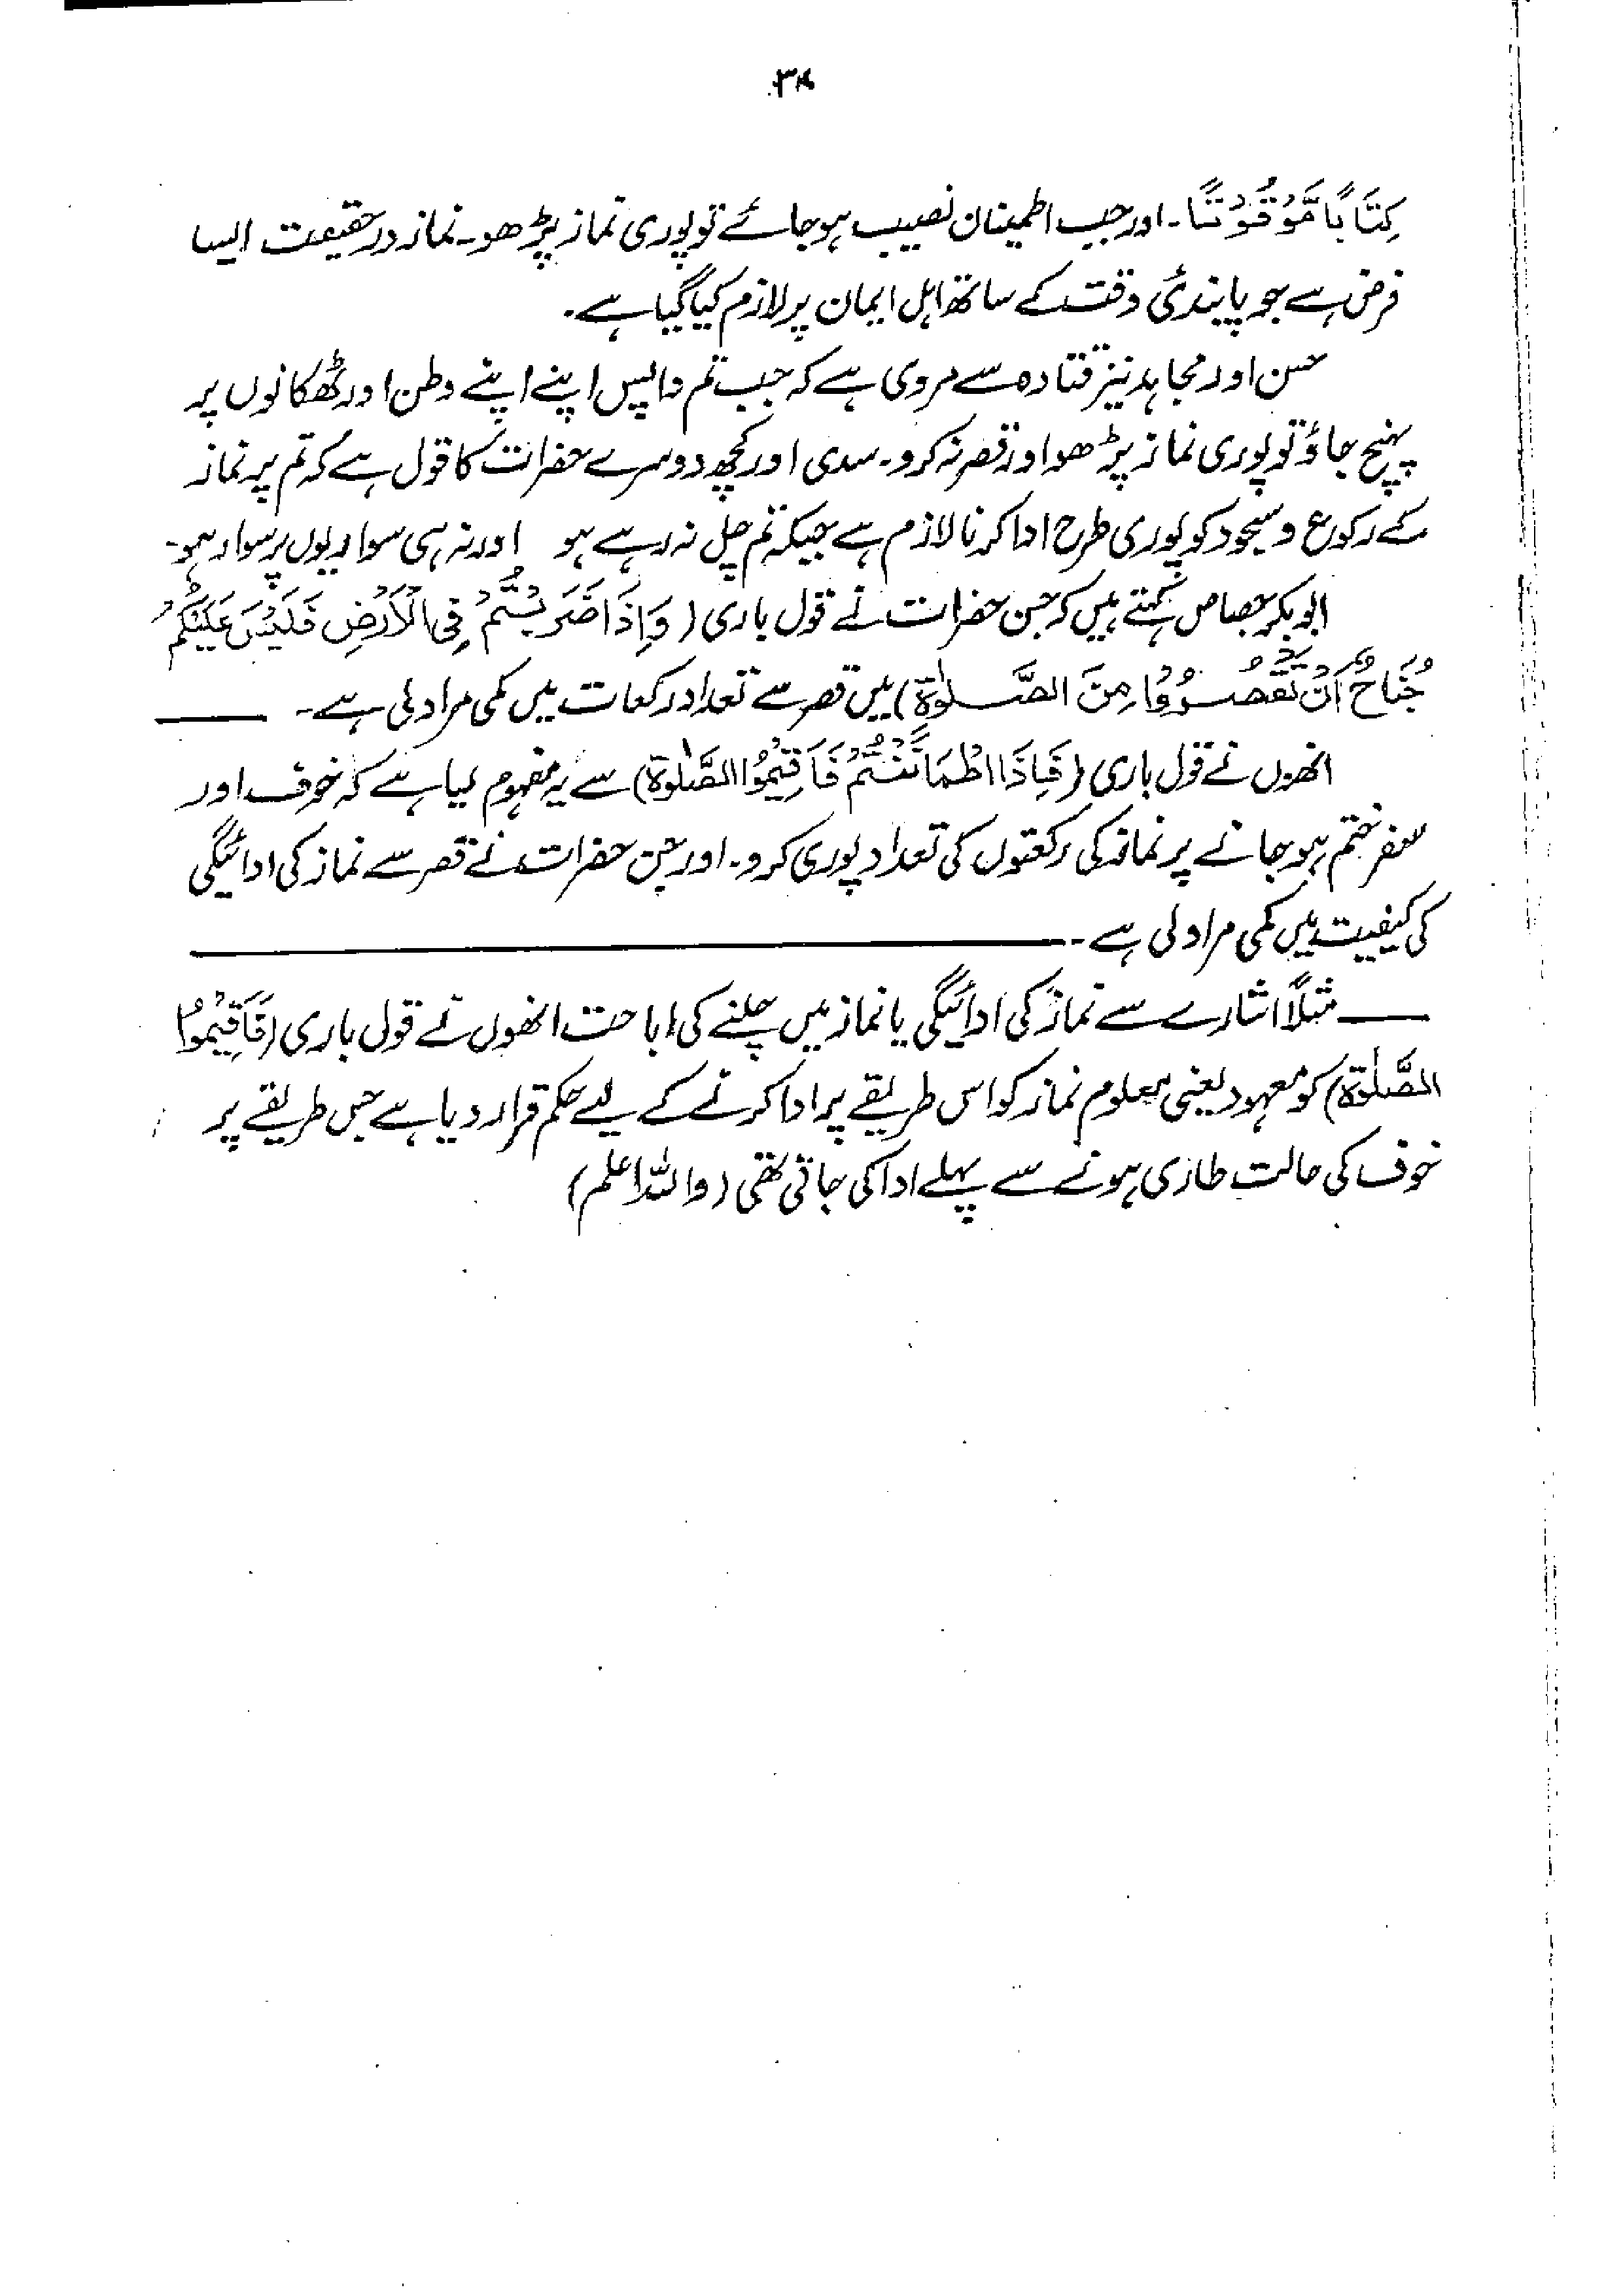 كِتَابًا مَّوْقُوْتًا۔ اور جب اطمینان نصیب ہو جائے تو پوری نماز پڑھو۔ نماز درحقیقت ایسا
فرض ہے جو پابندیٔ وقت کے ساتھ اہل ایمان پر لازم کیا گیا ہے۔
حسن اور مجاہد نیز قتادہ سے مروی ہے کہ جب تم واپس اپنے اپنے وطن اور ٹھکانوں پر
پہنچ جاؤ تو پوری نماز پڑھو اور قصر نہ کرو۔ سدی اور کچھ دوسرے حضرات کا قول ہے کہ تم پر نماز
کے رکوع و سجود کو پوری طرح ادا کرنا لازم ہے جبکہ تم چل نہ رہے ہو اور نہ ہی سواریوں پر سوار ہو۔
ابوبکر جصاص کہتے ہیں کہ جن حضرات نے قول باری (وَإِذَا ضَرَبْتُمْ فِي الْأَرْضِ فَلَيْسَ عَلَيْكُمْ
جُنَاحٌ أَنْ تَقْصُرُوْا مِنَ الصَّلٰوةِ) میں قصر سے تعداد رکعات میں کمی مراد لی ہے۔ ——
انھوں نے قول باری (فَإِذَا اطْمَأْنَنْتُمْ فَأَقِيْمُوا الصَّلٰوةَ) سے یہ مفہوم لیا ہے کہ خوف اور
سفر ختم ہو جانے پر نماز کی رکعتوں کی تعداد پوری کرو۔ اور جن حضرات نے قصر سے نماز کی ادائیگی
کی کیفیت میں کمی مراد لی ہے۔ ——
—— مثلاً اشارے سے نماز کی ادائیگی یا نماز میں چلنے کی اباحت انھوں نے قول باری (فَأَقِيْمُوا
الصَّلٰوةَ) کو معہود یعنی معلوم نماز کو اس طریقے پر ادا کرنے کے لیے حکم قرار دیا ہے جس طریقے پر
خوف کی حالت طاری ہونے سے پہلے ادا کی جاتی تھی (واللہ اعلم)